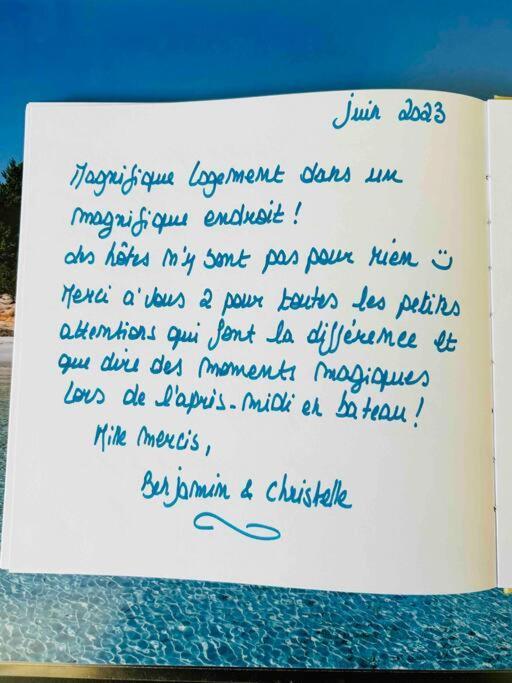 juin 2023
Magnifique logement dans un
magnifique endroit !
des hôtes n'y sont pas pour rien
Merci à vous 2 pour toutes les petites
attentions qui font la différence et
que dire des moments magiques
lors de l'après-midi en bateau !
Mille mercis,
Benjamin & Christelle